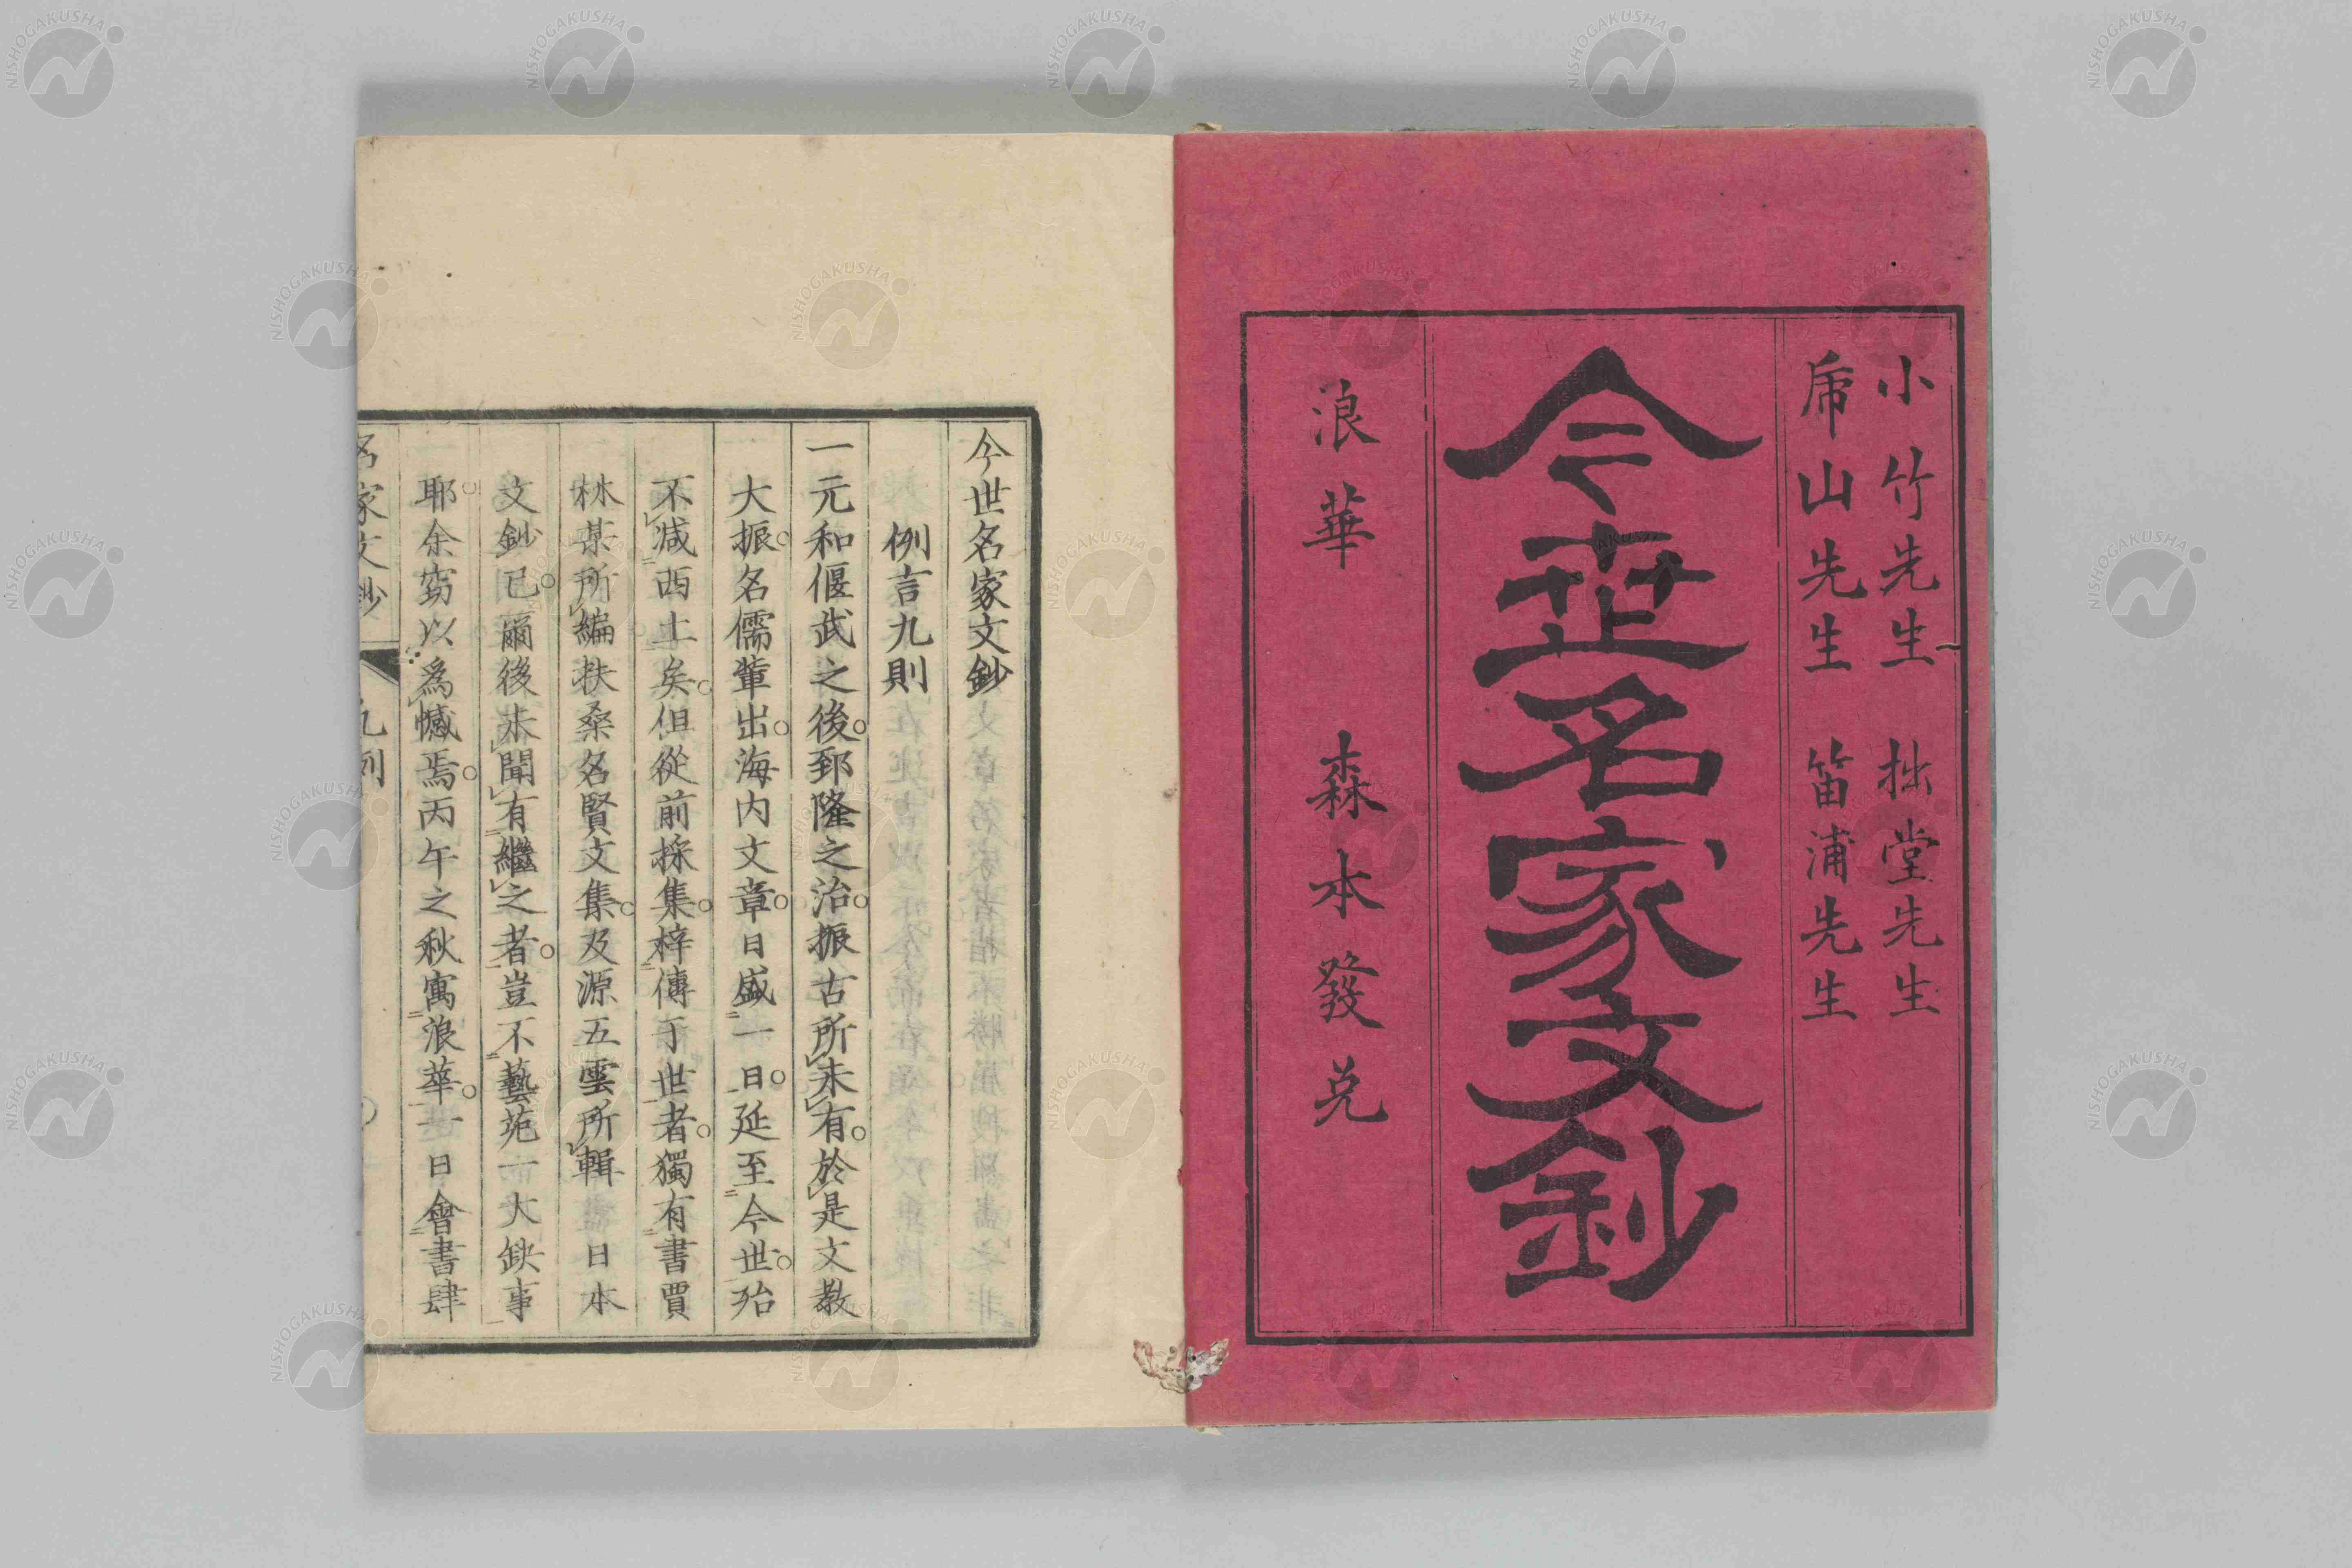 小竹先生　拙堂先生
乕山先生　笛浦先生
今世名家文鈔
浪華　森本發兌
今世名家文鈔
例言九則
一元和偃武之後。郅隆之治。振古所未有。於是文教
大振。名儒輩出。海内文章。日盛一日。延至今世。殆
不減西土矣。但從前採集。梓傳于世者。獨有書賈
林某所編扶桑名賢文集。及源五雲所輯日本
文鈔已。爾後未聞有繼之者。豈不藝苑一大鈌事
耶。余竊以爲憾焉。丙午之秋寓浪華。一日會書肆
名家文鈔　凡例
NISHOGAKUSHA